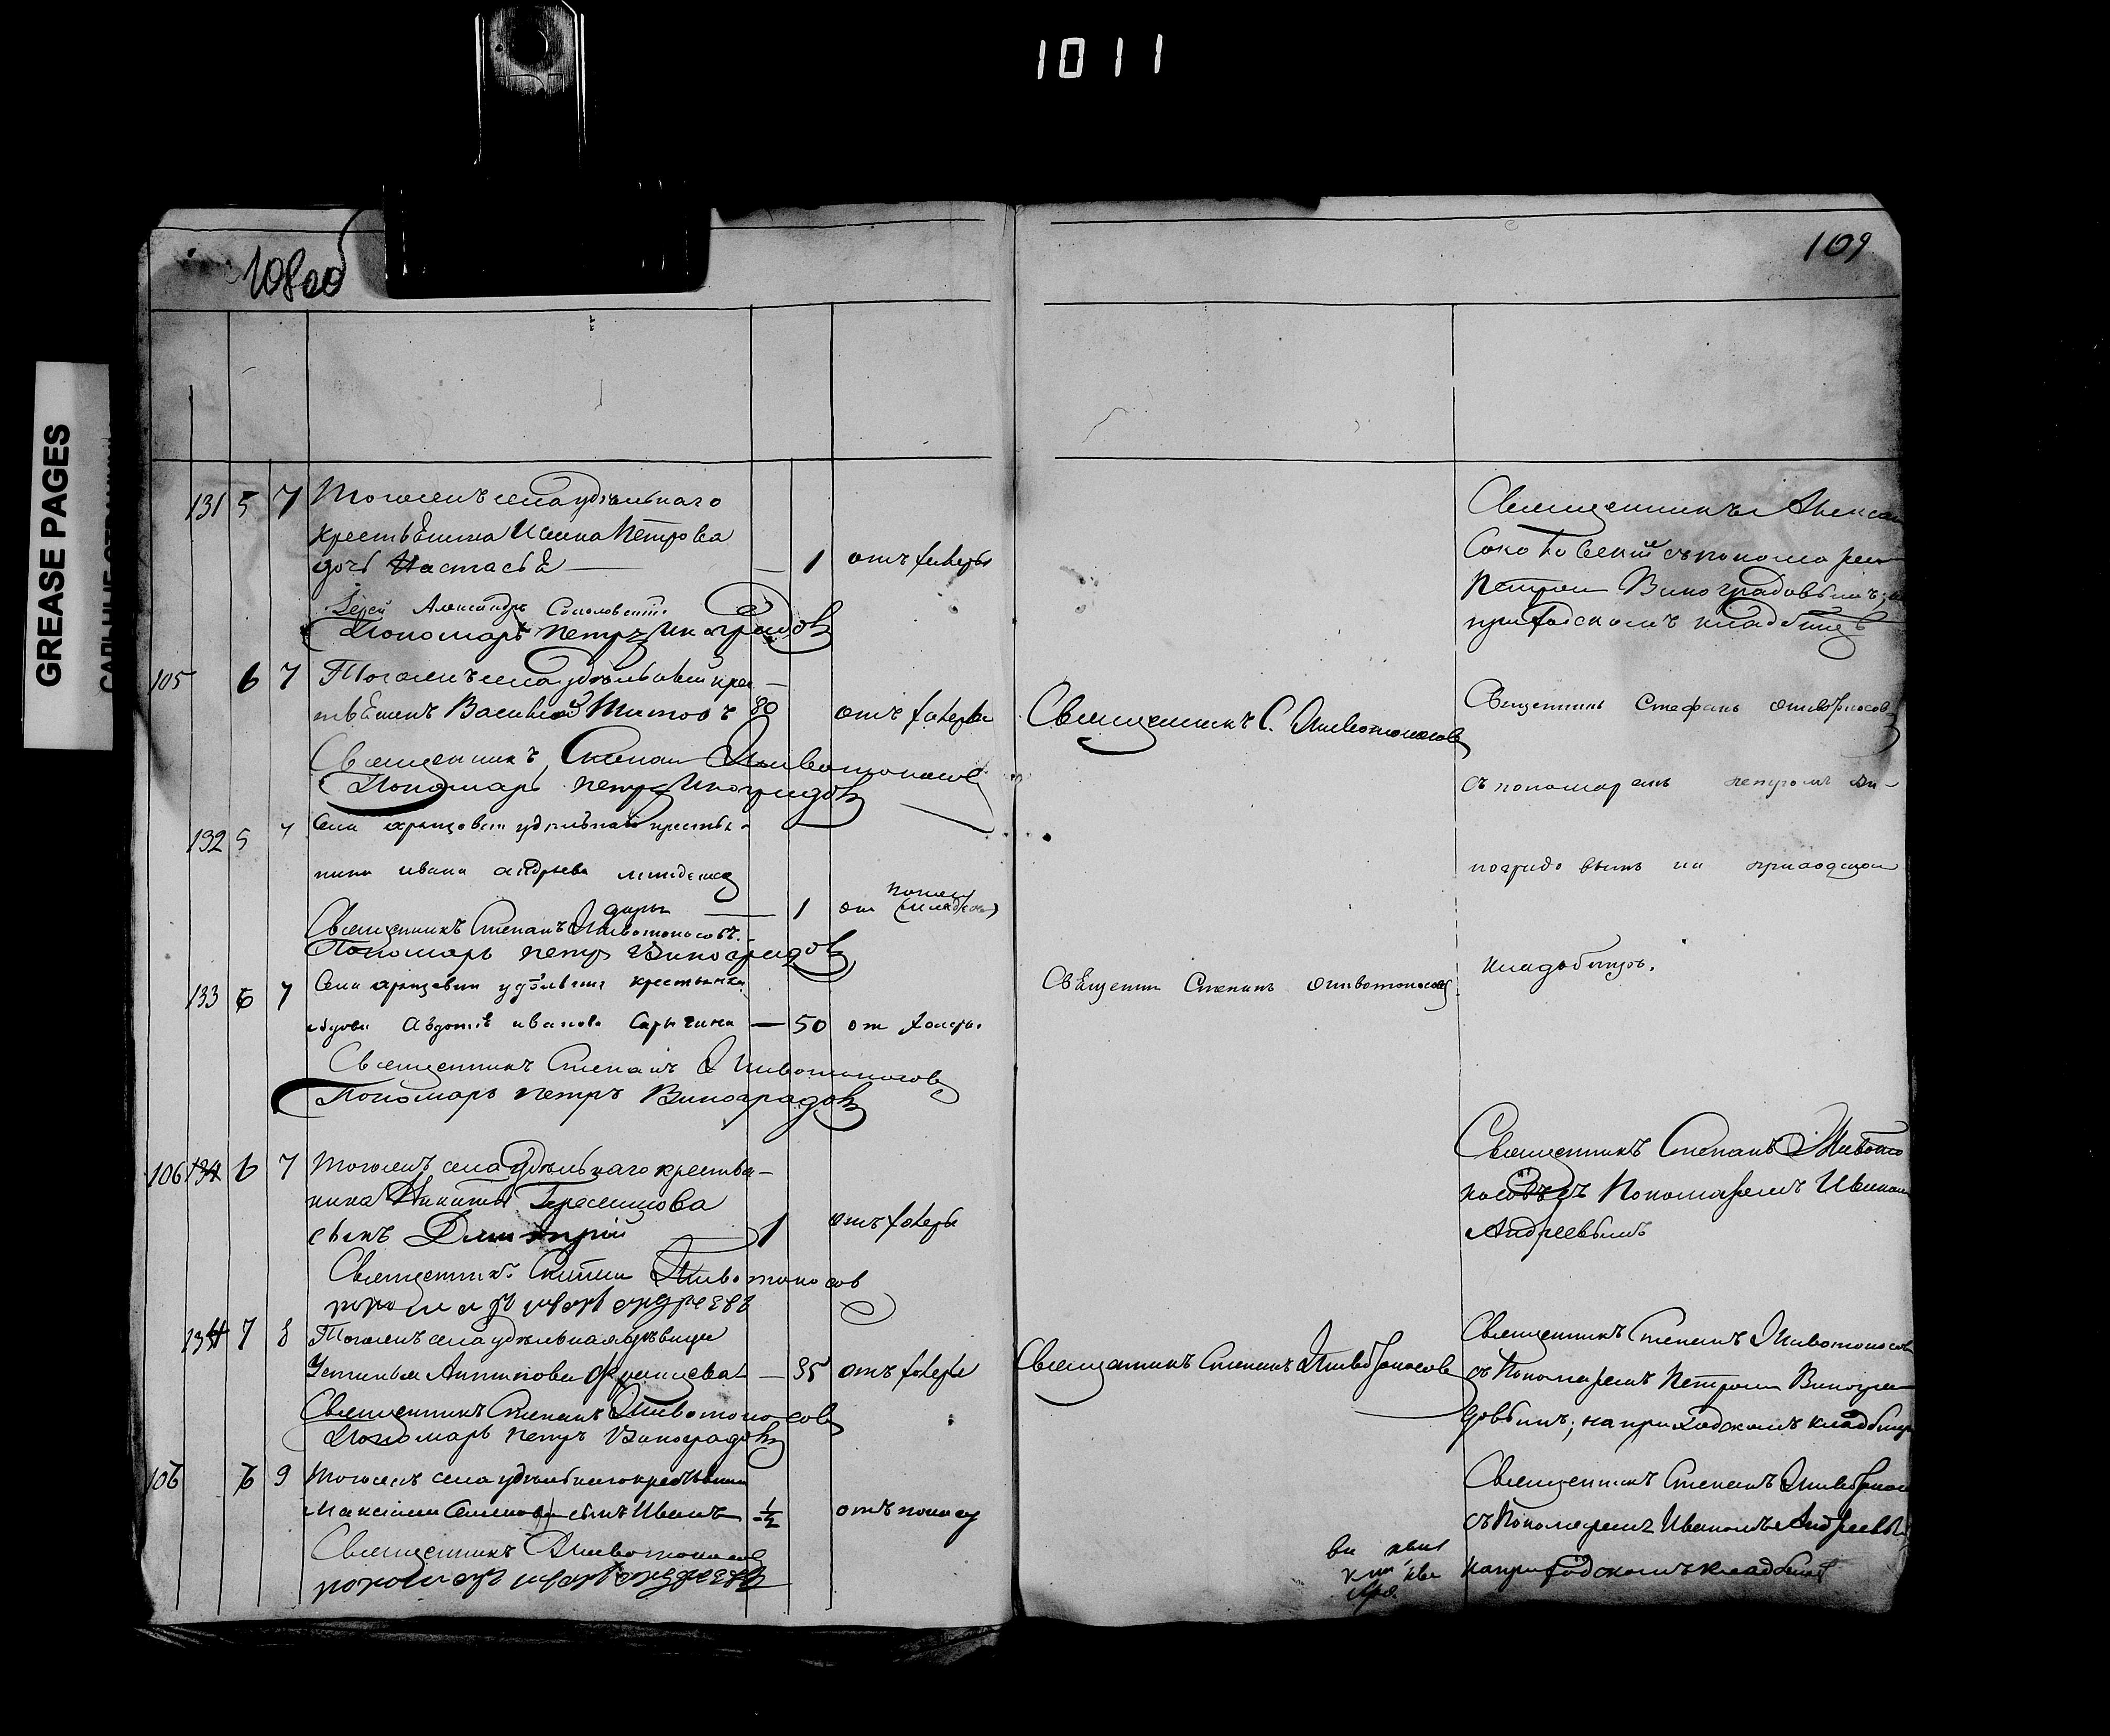 1011
GREASE PAGES
108 об
109
131 5 7 Того же села удѣльнаго
крестьянина Ивана Петрова
дочь Настасья — 1 отъ холеры
Іерей Александръ Соколовскій
Пономарь Петръ Виноградовъ
Священникъ Александръ
Соколовскій съ пономаремъ
Петромъ Виноградовымъ; на
приходскомъ кладбищѣ
105 6 7 Того же села удѣльный крес-
тьянинъ Василій Титовъ 80 отъ холеры
Священникъ Стефанъ Животоносовъ
Пономарь Петръ Виноградовъ
Священникъ С. Животоносовъ
Священникъ Стефанъ Животоносовъ
съ пономаремъ Петромъ Ви-
ноградовымъ на приходском
кладбищѣ.
132 5 7 Села удѣльнаго крестья-
нина Ивана Андреева младенец
Дарья — 1 от поносу (младенч.)
Священникъ Степанъ Животоносовъ.
Пономарь Петръ Виноградовъ
133 6 7 Села удѣльная крестьянка
вдова Авдотья Иванова — 50 от холеры
Священникъ Степанъ Животоносовъ
Пономарь Петръ Виноградовъ
Священник Степанъ Животоносовъ
106 134 6 7 Того же села удѣльнаго крестья-
нина Никиты Герасимова
сынъ Димитрій 1 отъ холеры
Священникъ Степан Животоносов
Пономарь Иванъ Андреевъ
Священникъ Степанъ Живото
носовъ съ Пономаремъ Иваномъ
Андреевымъ
134 7 8 Того же села удѣльная дѣвица
Устинья Антипова — 35 отъ холеры
Священникъ Степанъ Животоносовъ
Пономарь Петръ Виноградовъ
Священникъ Степанъ Животоносовъ
Священникъ Степанъ Животоносовъ
съ Пономаремъ Петромъ Виногра-
довымъ; на приходскомъ кладбищѣ
106 6 9 Того же села удѣльнаго крестьянина
Максима Семенова сынъ Иванъ 1/2 отъ поносу
Священникъ Животоносов
Пономарь Иванъ Андреевъ
Священникъ Степанъ Животонос
съ Пономаремъ Иваномъ Андреевы
на приходскомъ кладбищѣ